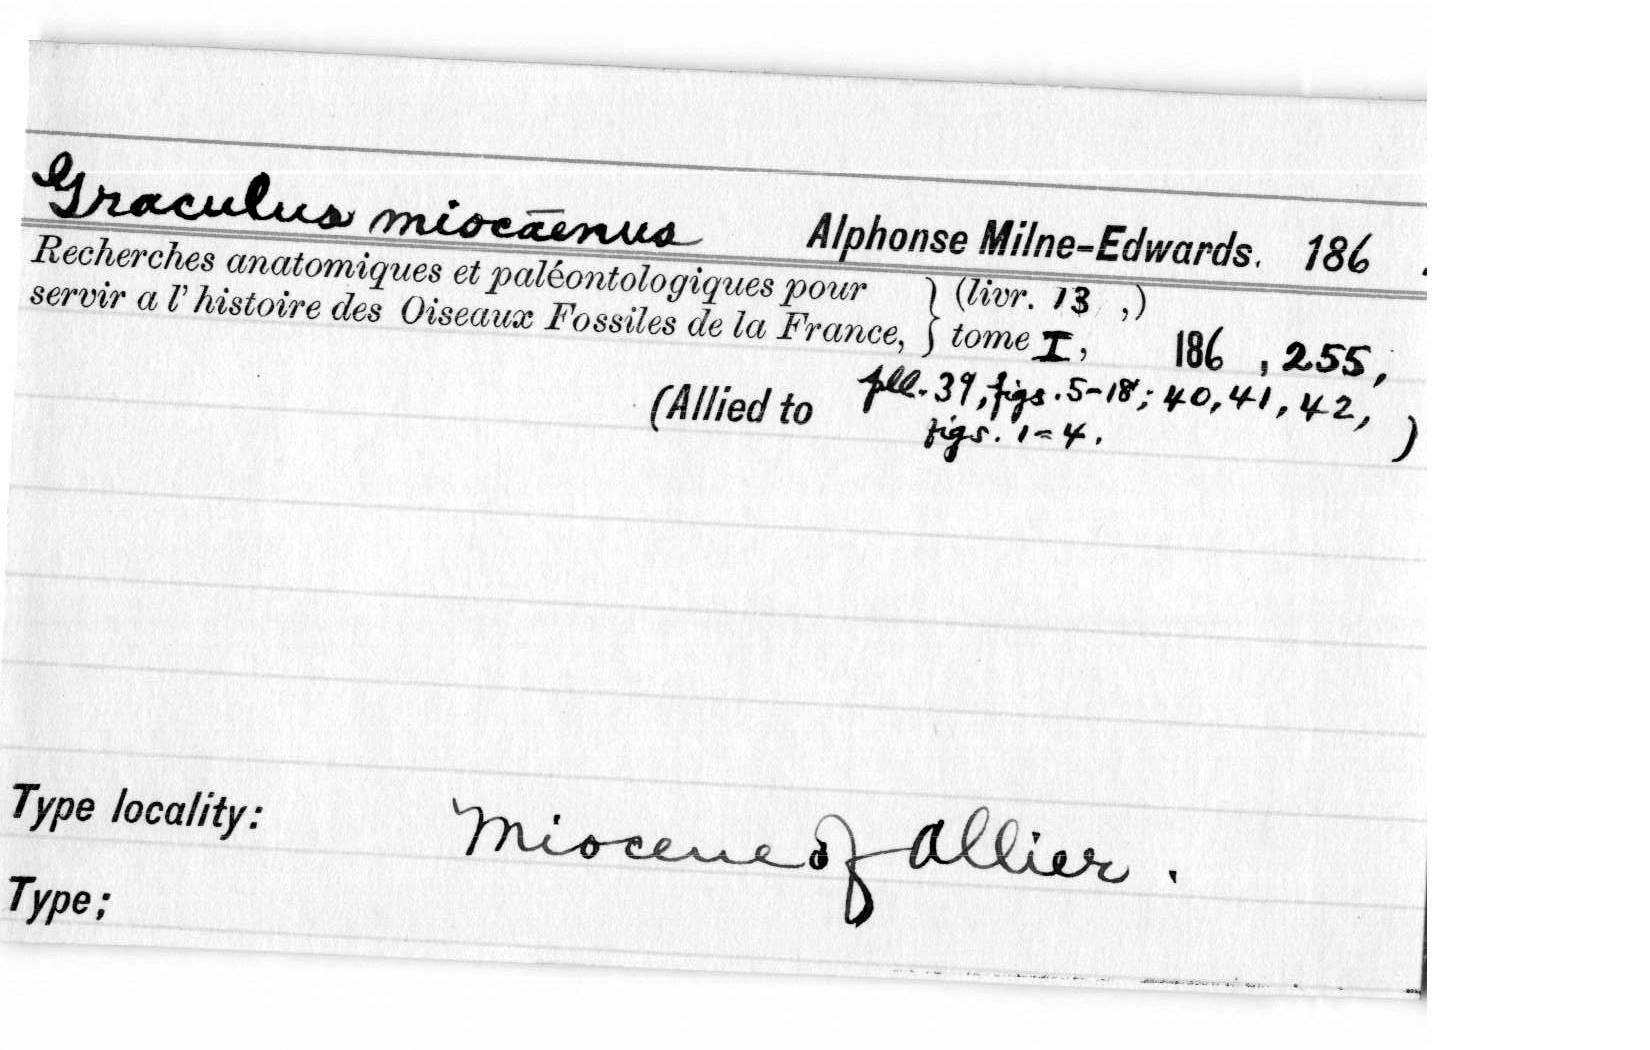 Graculus miocænus Alphonse Milne-Edwards. 186 .
Recherches anatomiques et paléontologiques pour } (livr. 13 ,)
servir a l'histoire des Oiseaux Fossiles de la France, } tome I, 186 , 255,
(Allied to pll. 39, figs. 5-18; 40, 41, 42,
figs. 1-4. )
Type locality: Miocene of Allier.
Type;